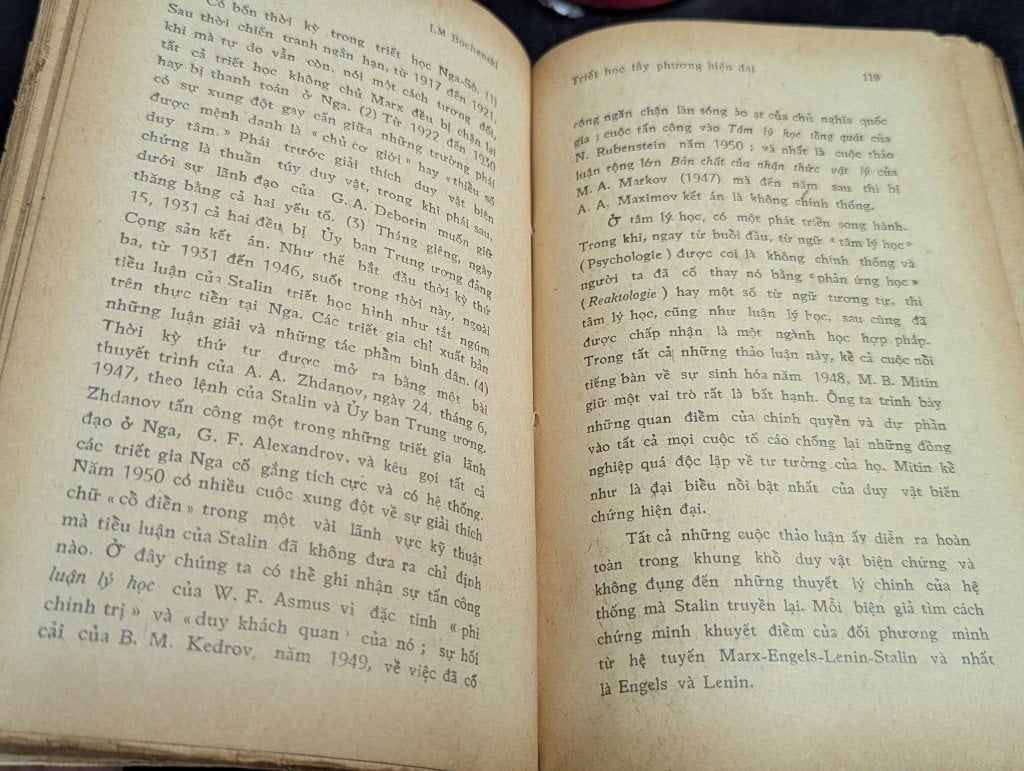 I.M Bochenski
Có bốn thời kỳ trong triết học Nga-Sô. (1)
Sau thời chiến tranh ngắn hạn, từ 1917 đến 1921,
khi mà tự do vẫn còn, nói một cách tương đối,
tất cả triết học không chủ Marx đều bị chận lại
hay bị thanh toán ở Nga. (2) Từ 1922 đến 1930
có sự xung đột gay cấn giữa những trường phái
được mệnh danh là « chủ cơ giới » hay « thiểu số
duy tâm. » Phái trước giải thích duy vật biên
chứng là thuần túy duy vật, trong khi phái sau,
dưới sự lãnh đạo của G. A. Deborin muốn giữ
thăng bằng cả hai yếu tố. (3) Tháng giêng, ngày
15, 1931 cả hai đều bị Ủy ban Trung ương đảng
Cọng sản kết án. Như thế bắt đầu thời kỳ thứ
ba, từ 1931 đến 1946, suốt trong thời này, ngoài
tiểu luận của Stalin triết học hình như tắt ngúm
trên thực tiễn tại Nga. Các triết gia chỉ xuất bản
những luận giải và những tác phẩm bình dân. (4)
Thời kỳ thứ tư được mở ra bằng một bài
thuyết trình của A. A. Zhdanov, ngày 24, tháng 6,
1947, theo lệnh của Stalin và Ủy ban Trung ương.
Zhdanov tấn công một trong những triết gia lãnh
đạo ở Nga, G. F. Alexandrov, và kêu gọi tất cả
các triết gia Nga cố gắng tích cực và có hệ thống.
Năm 1950 có nhiều cuộc xung đột về sự giải thích
chữ « cồ điền » trong một vài lãnh vực kỹ thuật
mà tiểu luận của Stalin đã không đưa ra chỉ định
nào. Ở đây chúng ta có thể ghi nhận sự tấn công
luận lý học của W. F. Asmus vì đặc tính « phi
chính trị » và « duy khách quan » của nó ; sự hối
cải của B. M. Kedrov, năm 1949, về việc đã cố
Triết học tây phương hiện đại 119
công ngăn chận làn sóng ào ạt của chủ nghĩa quốc
gia ; cuộc tấn công vào Tâm lý học tổng quát của
N. Rubenstein năm 1950 ; và nhất là cuộc thảo
luận rộng lớn Bản chất của nhận thức vật lý của
M. A. Markov (1947) mà đến năm sau thì bị
A. A. Maximov kết án là không chính thống.
Ở tâm lý học, có một phát triển song hành.
Trong khi, ngay từ buổi đầu, từ ngữ « tâm lý học»
(Psychologie) được coi là không chính thống và
người ta đã cố thay nó bằng «phản ứng học»
(Reaktologie) hay một số từ ngữ tương tự, thì
tâm lý học, cũng như luận lý học, sau cùng đã
được chấp nhận là một ngành học hợp pháp.
Trong tất cả những thảo luận này, kể cả cuộc nổi
tiếng bàn về sự sinh hóa năm 1948, M. B. Mitin
giữ một vai trò rất là bất hạnh. Ông ta trình bày
những quan điểm của chính quyền và dự phần
vào tất cả mọi cuộc tố cáo chống lại những đồng
nghiệp quá độc lập về tư tưởng của họ. Mitin kể
như là đại biểu nổi bật nhất của duy vật biến
chứng hiện đại.
Tất cả những cuộc thảo luận ấy diễn ra hoàn
toàn trong khung khổ duy vật biện chứng và
không đụng đến những thuyết lý chính của hệ
thống mà Stalin truyền lại. Mỗi biện giả tìm cách
chứng minh khuyết điểm của đối phương mình
từ hệ tuyến Marx-Engels-Lenin-Stalin và nhất
là Engels và Lenin.